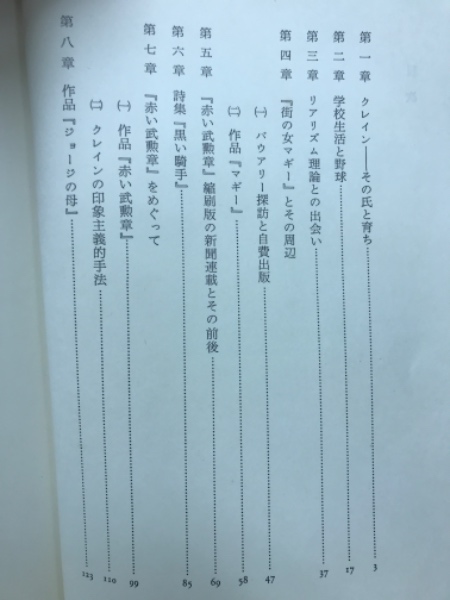 第一章 クレイン――その氏と育ち……3
第二章 学校生活と野球……17
第三章 リアリズム理論との出会い……37
第四章 『街の女マギー』とその周辺
㈠ バウアリー探訪と自費出版……47
㈡ 作品『マギー』……58
第五章 『赤い武勲章』縮刷版の新聞連載とその前後……69
第六章 詩集『黒い騎手』……85
第七章 『赤い武勲章』をめぐって
㈠ 作品『赤い武勲章』……99
㈡ クレインの印象主義的手法……110
第八章 作品『ジョージの母』……123